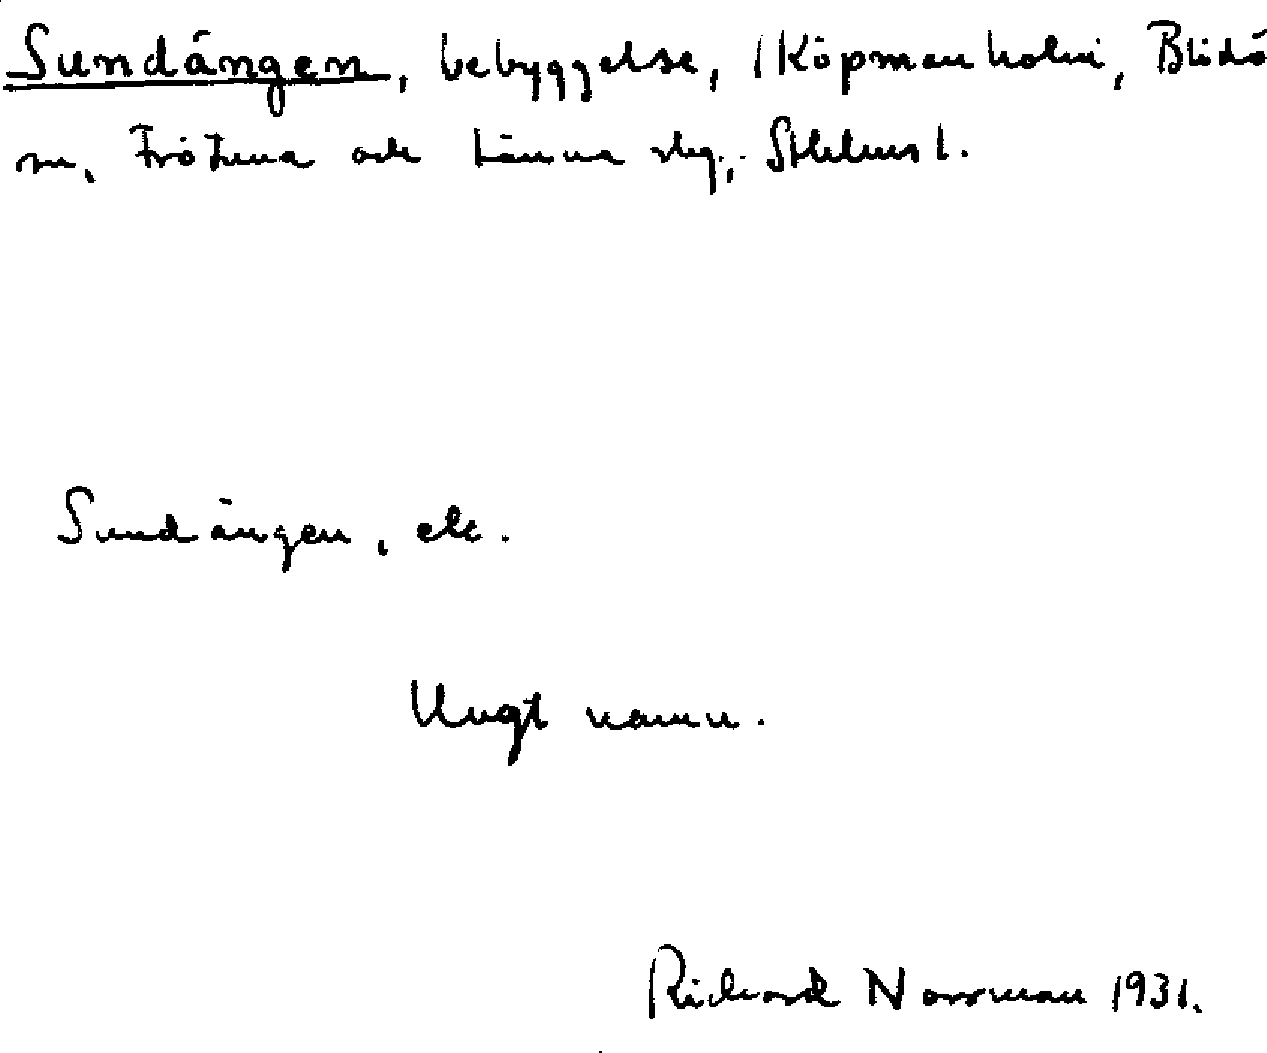 Sundängen, bebyggelse, i Köpmanholm, Blidö
sn, Frötuna och Länna skg, Sthlms l.
Sundängen, etc.
Ungt namn.
Richard Norrman 1931.